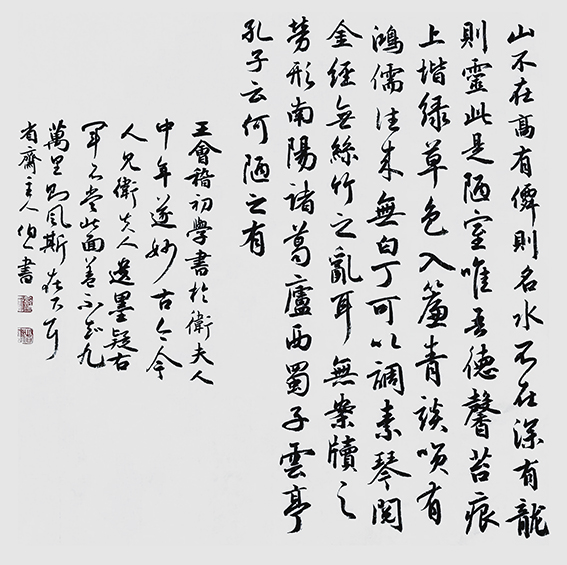 山不在高有僊則名水不在深有龍
則靈此是陋室唯吾德馨苔痕
上堦緑草色入簾青談咲有
鴻儒往来無白丁可以調素琴閲
金經無絲竹之亂耳無案牘之
勞形南陽諸葛廬西蜀子雲亭
孔子云何陋之有
王會稽初學書於衛夫人
中年遂妙古今今
人見衛夫人遺墨疑右
軍不當北面蓋不知九
萬里則風斯在下耳
省齋主人書